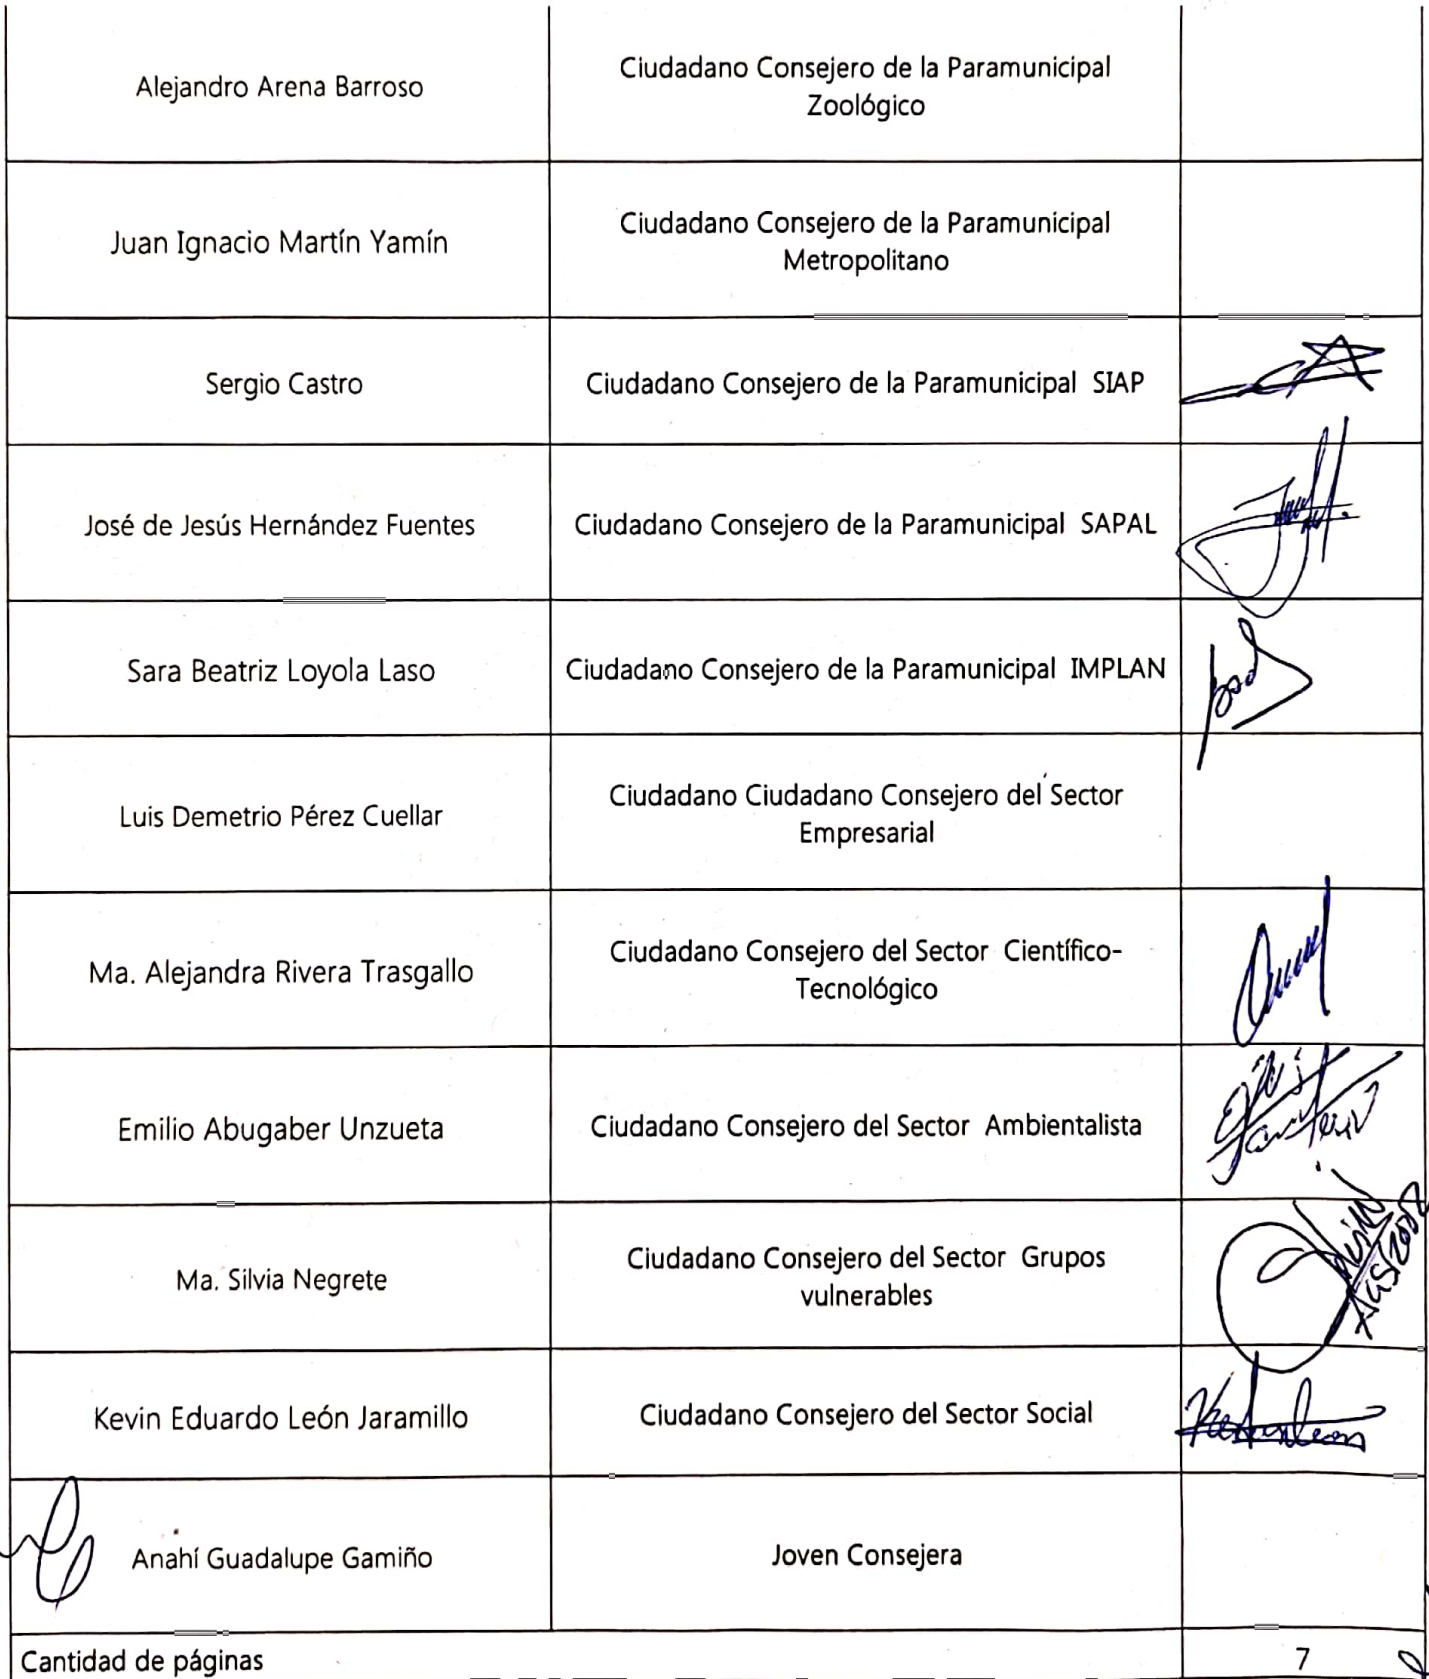 Alejandro Arena Barroso
Ciudadano Consejero de la Paramunicipal
Zoológico
Juan Ignacio Martín Yamín
Ciudadano Consejero de la Paramunicipal
Metropolitano
Sergio Castro
Ciudadano Consejero de la Paramunicipal SIAP
José de Jesús Hernández Fuentes
Ciudadano Consejero de la Paramunicipal SAPAL
Sara Beatriz Loyola Laso
Ciudadano Consejero de la Paramunicipal IMPLAN
Luis Demetrio Pérez Cuellar
Ciudadano Ciudadano Consejero del Sector
Empresarial
Ma. Alejandra Rivera Trasgallo
Ciudadano Consejero del Sector Científico-
Tecnológico
Emilio Abugaber Unzueta
Ciudadano Consejero del Sector Ambientalista
Ma. Silvia Negrete
Ciudadano Consejero del Sector Grupos
vulnerables
Kevin Eduardo León Jaramillo
Ciudadano Consejero del Sector Social
Anahí Guadalupe Gamiño
Joven Consejera
Cantidad de páginas
7